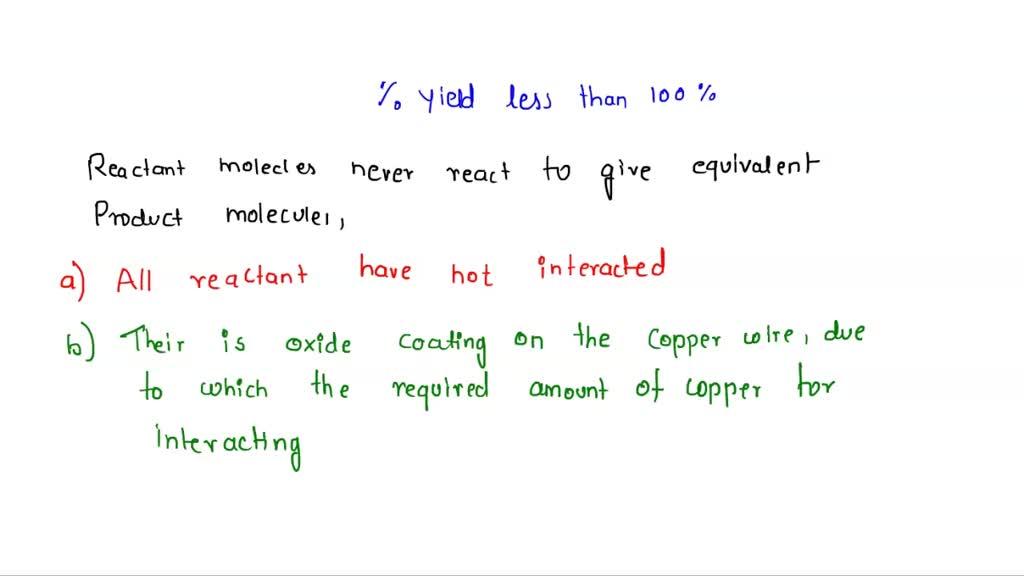 % Yield less than 100 %
Reactant molecles never react to give equivalent
Product molecules,
a) All reactant have not interacted
b) Their is oxide coating on the copper wire, due
to which the required amount of copper for
interacting